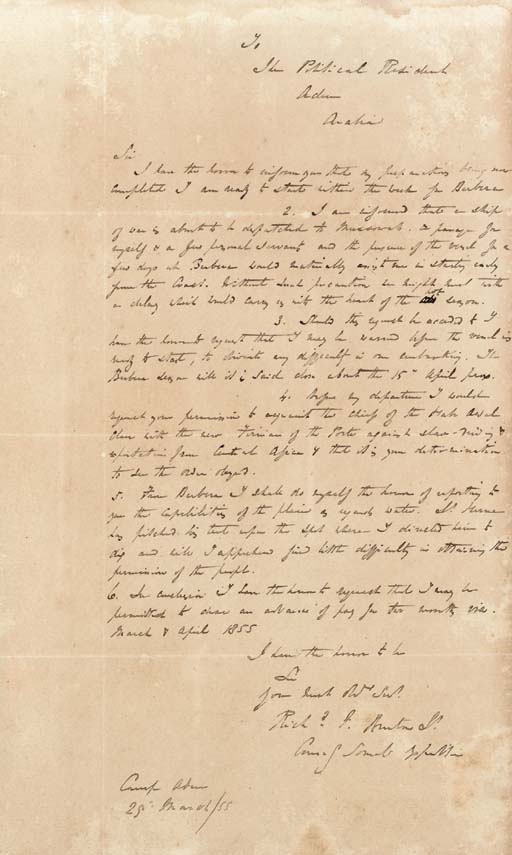 To
The Political Resident
Aden
Arabia
Sir
I have the honor to inform you that my preparations being now
completed I am ready to start within the week for Berbera
2. I am informed that a ship
of war is about to be despatched to Massowah. A passage for
myself & a few personal servants and the presence of the vessel for a
few days at Berbera would materially assist me in starting early
from the Coast. Without such precaution we might meet with
a delay which would carry us into the heart of the hot season.
3. Should this request be acceded to I
have the honor to request that I may be warned before the vessel is
ready to start, to obviate any difficulty in our embarking. The
Berbera season will it is said close about the 15th April prox.
4. Before my departure I would
request your permission to acquaint the chief of the Habr Awal
clan with the new Firman of the Porte against slave-driving &
exportation from Central Africa & that it is your determination
to see the order obeyed.
5. From Berbera I shall do myself the honor of reporting to
you the capabilities of the plain as regards water. Lt. Herne
has pitched his tent upon the spot where I directed him to
dig and will I apprehend find little difficulty in obtaining the
permission of the people.
6. In conclusion I have the honor to request that I may be
permitted to draw an advance of pay for two months viz.
March & April 1855
I have the honor to be
Sir
Your most Obt. Servt.
Richd. F. Burton Lt.
Comg Somali Expedition
Camp Aden
25 March/55